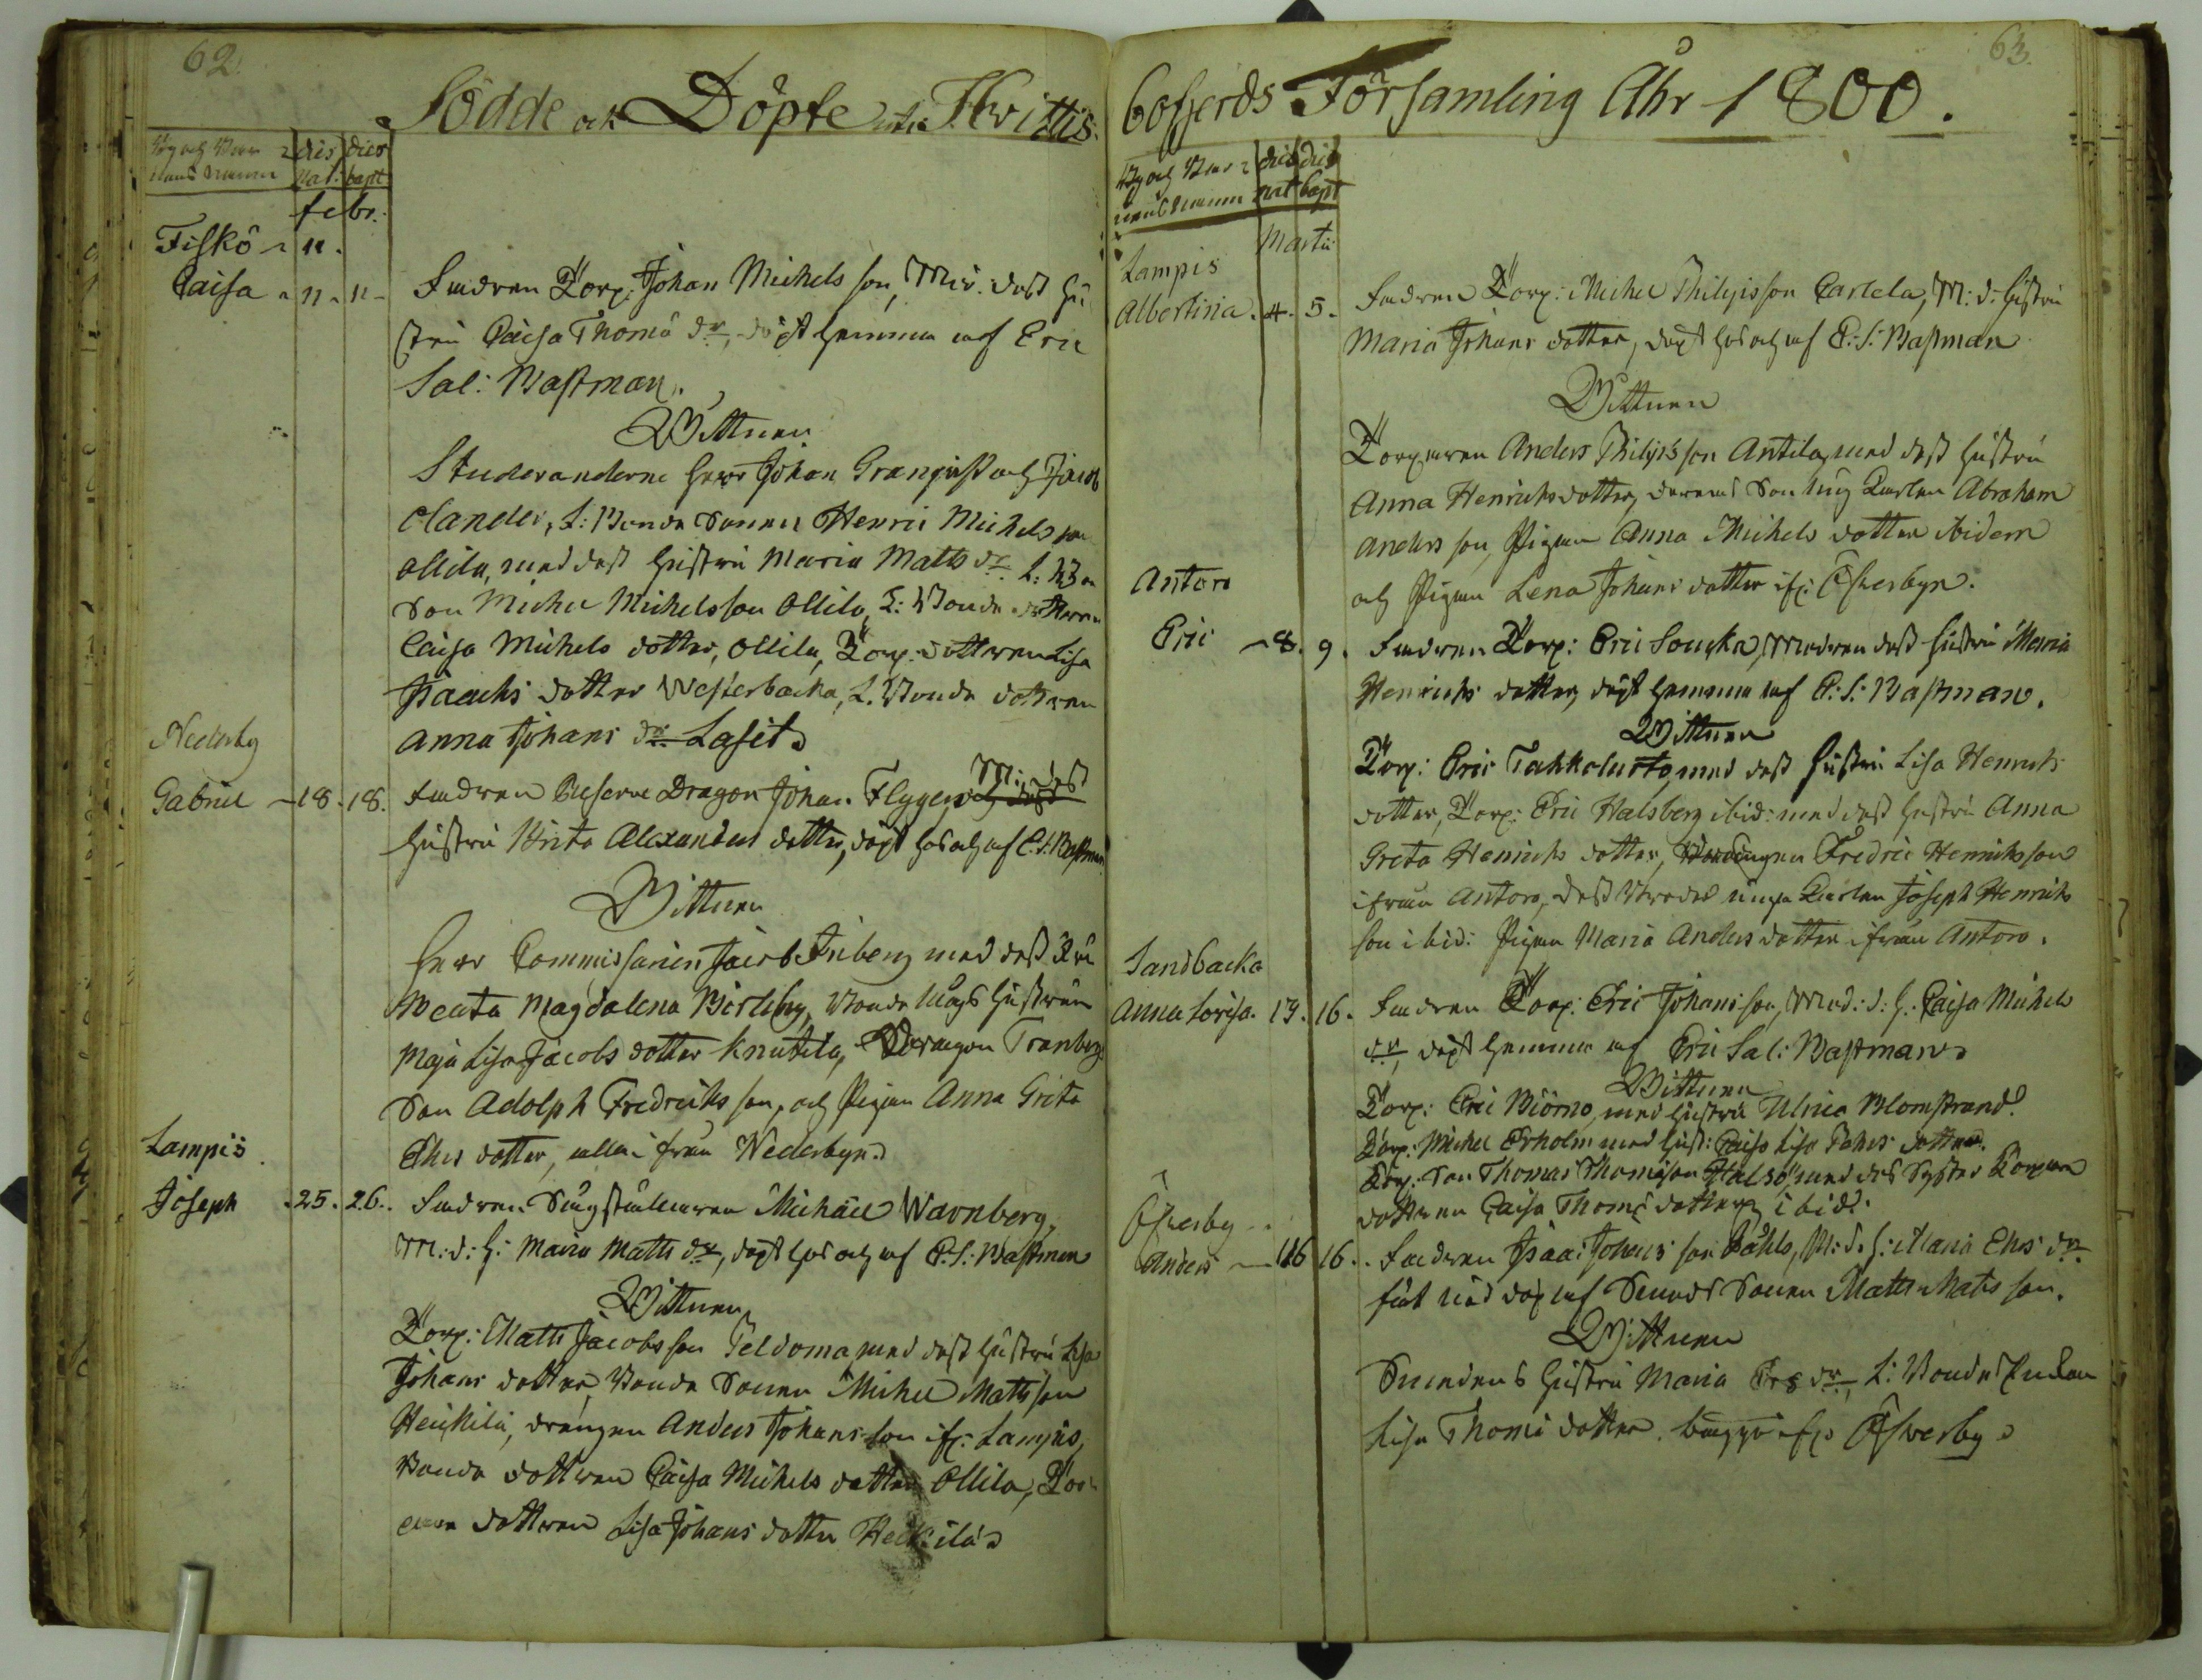 62.
Födde och Döpte uti Hvittis
By och Bar
nens Namn
dies dies
Nat. bapt.
febr.
Fiskö
Caisa 11. 11.
Fadren Torp: Johan Michelsson, Mod: dess Hu
stru Caisa Thomæ dr, döpt hemma af Eric
Sal: Bastman.
Wittnen
Studeranderne Herr Johan Granqvist och Jacob
Olander, L: Bonde Sonen Henric Michelsson
Ollila, med dess Hustru Maria Matts dr. L: Bon
Son Michel Michelsson Ollila, L: Bonde dottern
Caisa Michels dotter, Ollila, Torp. dottren Lisa
Isaachs dotter Westerbacka, L. Bonde dottren
Anna Johans dr. Lasita
Nederby
Gabriel 18. 18.
Fadren Reserve Dragon Johan Flygge, M: dess
Hustru Brita Alexanders dotter, döpt hos och af E. S. Bastman
Wittnen
Herr Commissarien Jacob Friberg med dess Fru
Beata Magdalena Hustrun
Maja Lisa Jacobs dotter Knutila, Dragon Tranberg
Son Adolph Fredrichsson, och Pigan Anna Greta
Ehrs dotter, alla ifrån Nederbyn
Lampis
Joseph 25. 26.
Fadren Michäel Warnberg,
M: d: H: Maria Matts dr, döpt hos och af E. S: Bastman
Wittnen
Torp: Matts Jacobsson Peldoma, med dess Hustru Lisa
Johans dotter, Bonde Sonen Michel Mattsson
Heickilä, drängen Anders Johansson ifr: Lampis,
Bonde dottren Caisa Michels dotter Ollila, Tor
pare dottren Lisa Johans dotter Heickilä
63.
bofjerds Församling Åhr 1800.
By och Bar
nens Namn
dies dies
nat bapt
Martii
Lampis
Albertina. 4. 5.
Fadren Torp: Michel Philipsson Carlela, M: d: Hustru
Maria Johans dotter, döpt hos och af E: S: Bastman
Wittnen
Torparen Anders Philipsson Antila, med dess Hustru
Anna Henrichsdotter, deras Son Abraham
Andersson, Pigan Anna Michels dotter ibidem
och Pigan Lena Johans dotter ifr: Öfverbyn.
Antoro
Eric 8. 9.
Fadren Torp: Eric Soucka, Modren dess Hustru Maria
Henrichs dotter, döpt hemma af E: S: Bastman.
Wittnen
Torp: Eric Tahkoluoto, med dess Hustru Lisa Henrichs
dotter, Torp: Eric Halsberg ibid: med dess Hustru Anna
Greta Henrichs dotter, Fredric Henrichsson
ifrån Antoro, dess Joseph Henrichs
son ibid: Pigan Maria Anders dotter ifrån Antoro.
Sandbacka
Anna Lovisa. 15. 16.
Fadren Torp: Eric Johansson, Mod: d: H: Caisa Michels
dr, döpt hemma af Eric Sal: Bastman
Wittnen
Torp: Eric Biörno, med Hustru Ulrica Blomstrand.
Torp: Michel Ekholm med Hust: Caisa Lisa dotter.
Torp: Son Thomas Thomasson Halsö, med dess Syster Torpare
dottren Caisa Thomæ dotter ibid.
Öfverby
Anders 16 16.
Fadren Isaac Johansson Påhls, M: d. H: Maria Ehrs dr.
af Sonen Matts Matsson.
Wittnen
Hustru Maria dr, L: Bonde
Lisa Thomæ dotter, bägge ifr: Öfverby